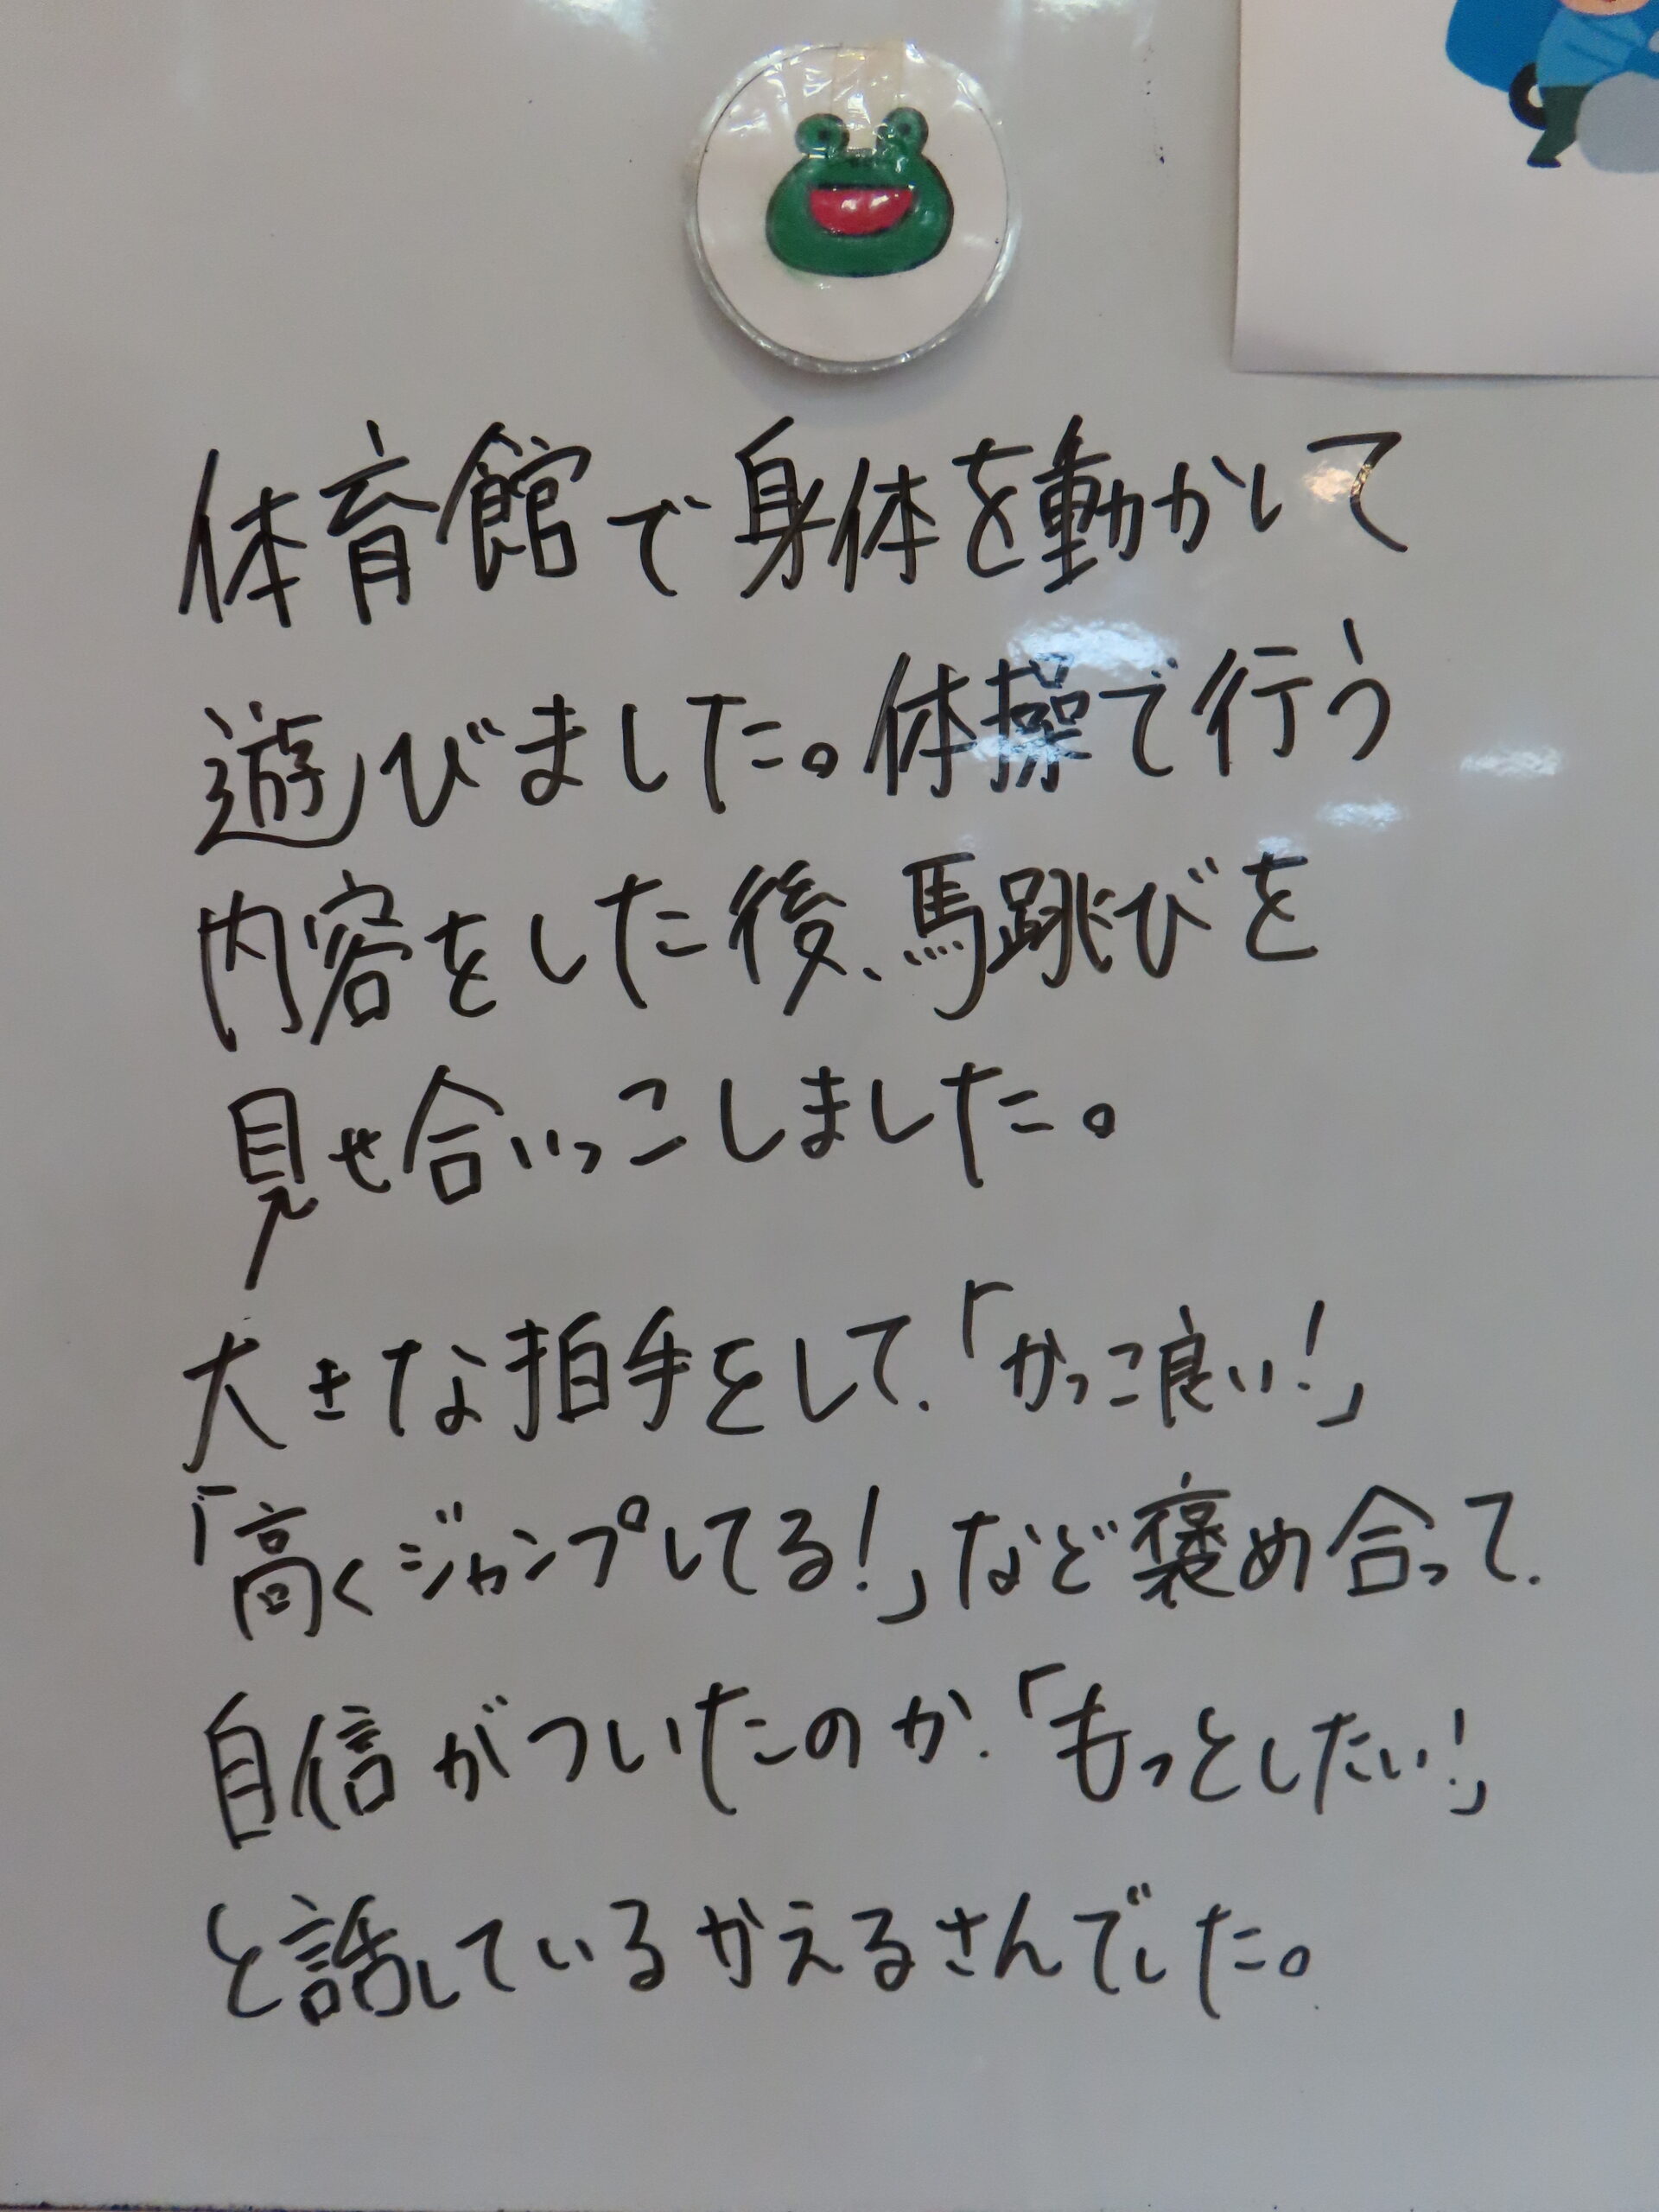 体育館で身体を動かして
遊びました。体操で行う
内容をした後、馬跳びを
見せ合いっこしました。
大きな拍手をして、「かっこ良い!」
「高くジャンプしてる!」など褒め合って、
自信がついたのか、「もっとしたい!」
と話しているかえるさんでした。